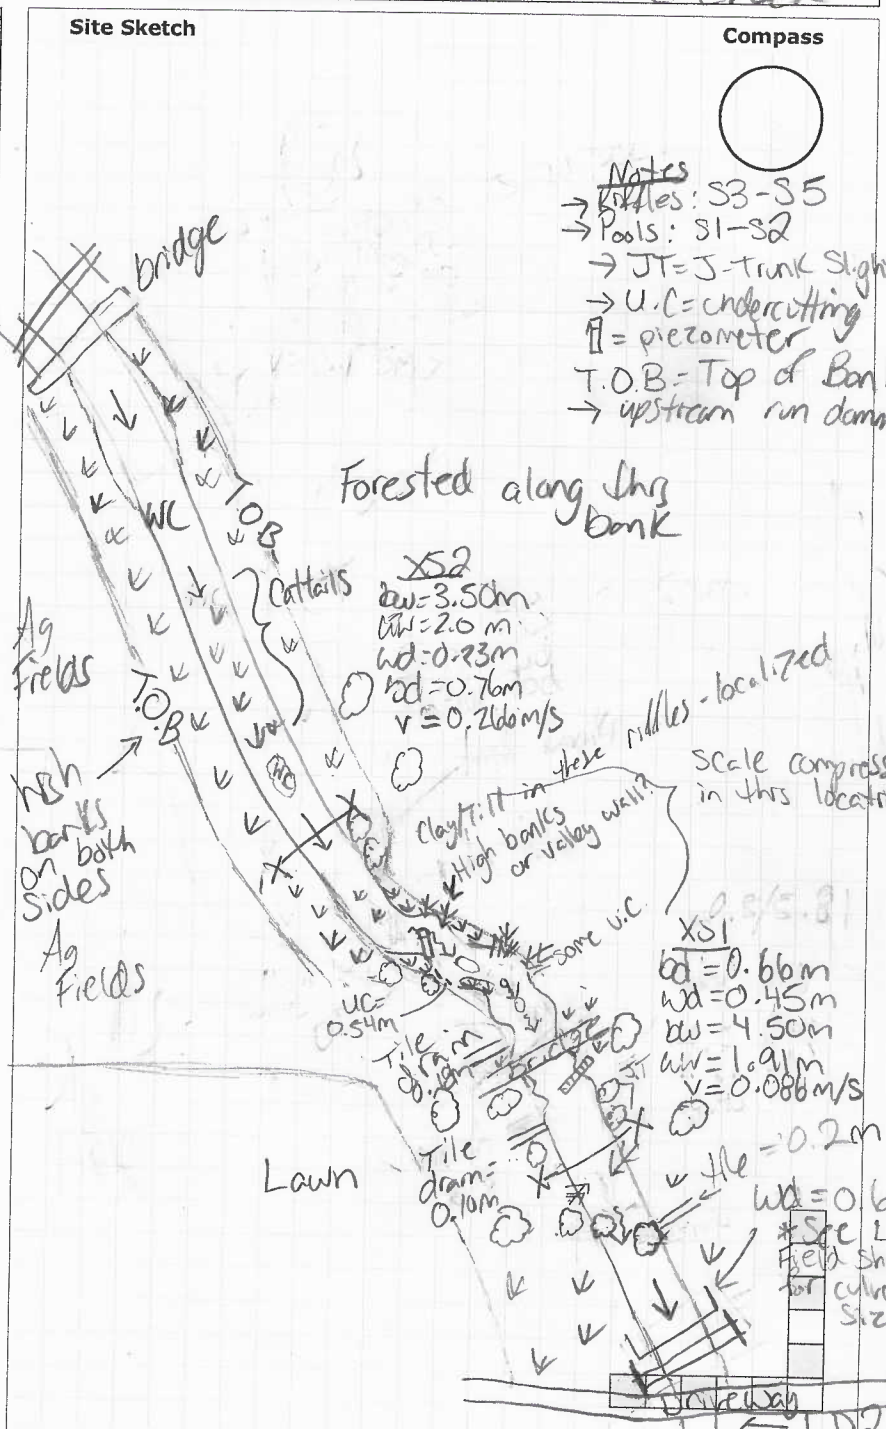 Site Sketch
Compass
Notes
→ Riffles: S3-S5
→ Pools: S1-S2
→ JT=J-Trunk Sligh
→ U.C=undercutting
= piezometer
T.O.B=Top of Ban
→ upstream run damm
bridge
WC
T.O.B
Forested along this
bank
Cattails
XS2
bw=3.50m
ww=2.0m
wd=0.23m
bd=0.76m
v=0.266m/s
Ag
Fields
T.O.B
high
banks
on both
sides
Ag
Fields
WC
Clay/Till in these riffles-localized
High banks
or valley wall?
Scale compress
in this locati
some U.C
XS1
bd=0.66m
wd=0.45m
bw=4.50m
ww=1.91m
v=0.086m/s
UC=
0.54m
Tile
drain
Bridge
JT
Lawn
Tile
drain=
0.10m
tile=0.2m
wd=0.6
*See L
Field Sh
for culve
Siz
Driveway